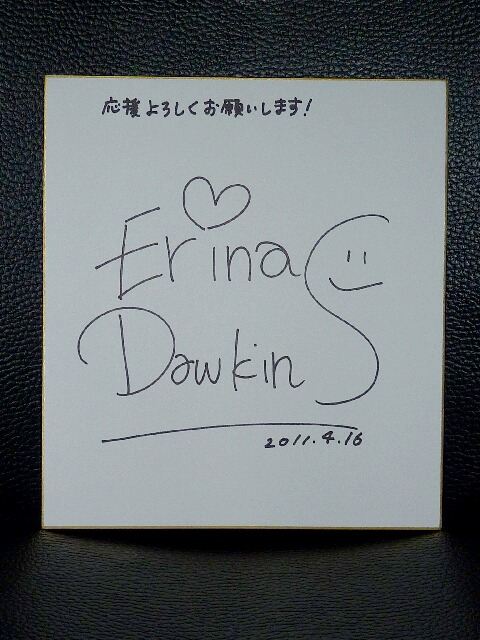 応援よろしくお願いします!
Erina
DawkinS
2011.4.16